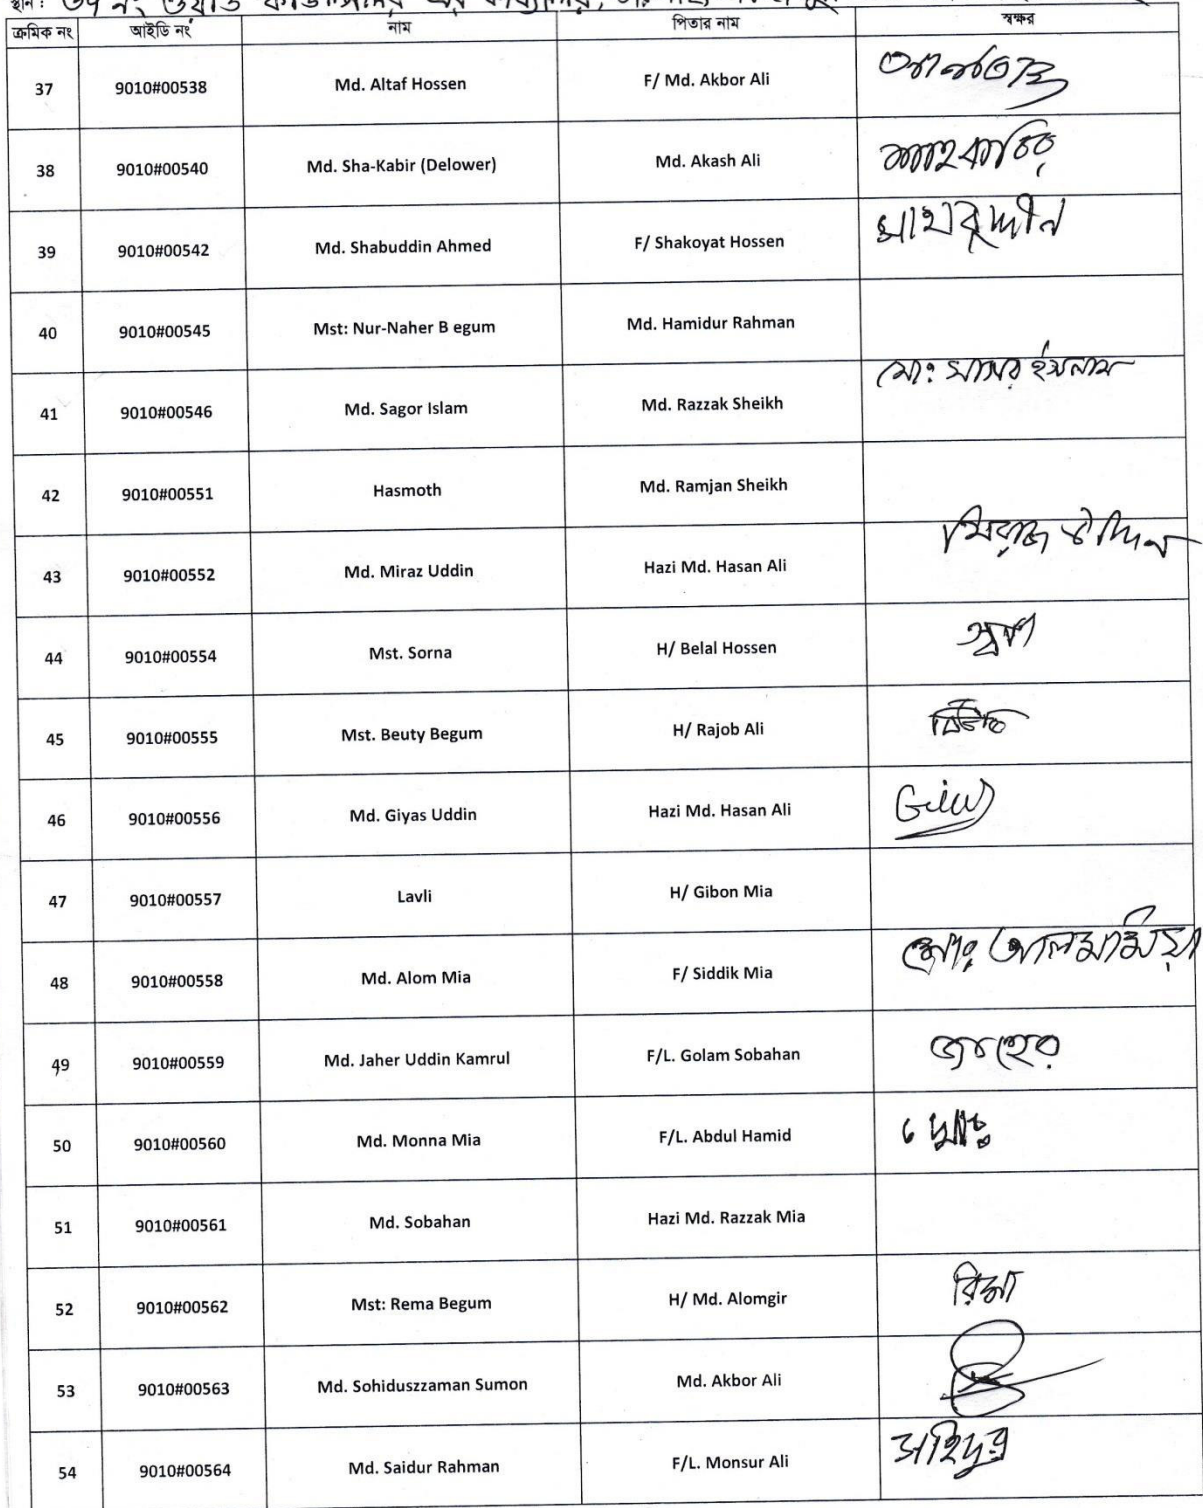 স্থান: ৩৭ নং ওয়ার্ড কাউন্সিলর এর কার্যালয়,
ক্রমিক নং আইডি নং নাম পিতার নাম স্বক্ষর
37 9010#00538 Md. Altaf Hossen F/ Md. Akbor Ali
38 9010#00540 Md. Sha-Kabir (Delower) Md. Akash Ali শাহ কাবির
39 9010#00542 Md. Shabuddin Ahmed F/ Shakoyat Hossen
40 9010#00545 Mst: Nur-Naher B egum Md. Hamidur Rahman
41 9010#00546 Md. Sagor Islam Md. Razzak Sheikh মোঃ সাগর ইসলাম
42 9010#00551 Hasmoth Md. Ramjan Sheikh
43 9010#00552 Md. Miraz Uddin Hazi Md. Hasan Ali মিরাজ উদ্দিন
44 9010#00554 Mst. Sorna H/ Belal Hossen
45 9010#00555 Mst. Beuty Begum H/ Rajob Ali বিউটি
46 9010#00556 Md. Giyas Uddin Hazi Md. Hasan Ali
47 9010#00557 Lavli H/ Gibon Mia
48 9010#00558 Md. Alom Mia F/ Siddik Mia মোঃ আলম মিয়া
49 9010#00559 Md. Jaher Uddin Kamrul F/L. Golam Sobahan জাহের
50 9010#00560 Md. Monna Mia F/L. Abdul Hamid
51 9010#00561 Md. Sobahan Hazi Md. Razzak Mia
52 9010#00562 Mst: Rema Begum H/ Md. Alomgir রিমা
53 9010#00563 Md. Sohiduszzaman Sumon Md. Akbor Ali
54 9010#00564 Md. Saidur Rahman F/L. Monsur Ali